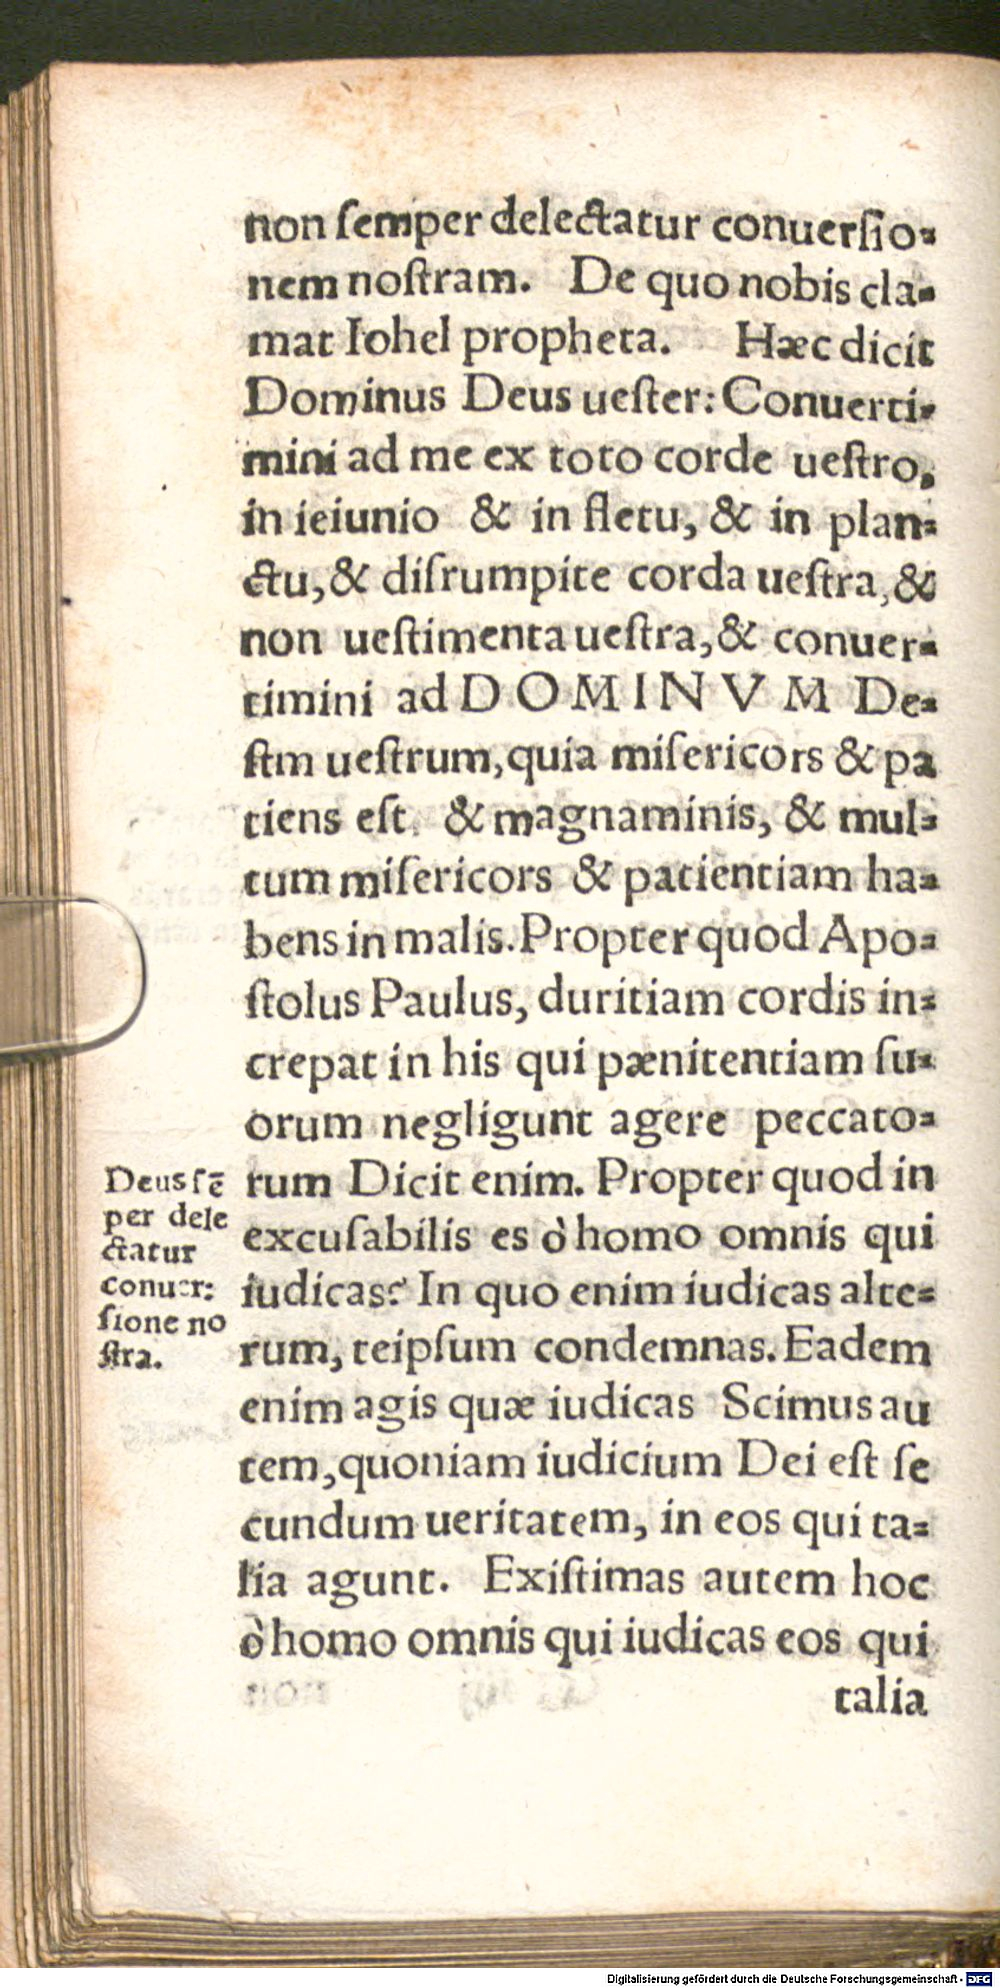 non ſemper delectatur conuerſio-
nem noſtram. De quo nobis cla-
mat Iohel propheta. Hæc dicit
Dominus Deus ueſter: Conuerti-
mini ad me ex toto corde ueſtro,
in ieiunio & in fletu, & in plan-
ctu, & diſrumpite corda ueſtra, &
non ueſtimenta ueſtra, & conuer-
timini ad DOMINVM De-
ſtm ueſtrum, quia miſericors & pa
tiens eſt, & magnaminis, & mul-
tum miſericors & patientiam ha-
bens in malis. Propter quod Apo-
ſtolus Paulus, duritiam cordis in-
crepat in his qui pænitentiam ſu-
orum negligunt agere peccato-
rum Dicit enim. Propter quod in
excuſabilis es ò homo omnis qui
iudicas? In quo enim iudicas alte-
rum, teipſum condemnas. Eadem
enim agis quæ iudicas Scimus au
tem, quoniam iudicium Dei eſt ſe
cundum ueritatem, in eos qui ta-
lia agunt. Exiſtimas autem hoc
ò homo omnis qui iudicas eos qui
talia
Deus ſẽ
per dele
ctatur
conuer:
ſione no
ſtra.
Digitalisierung gefördert durch die Deutsche Forschungsgemeinschaft - DFG